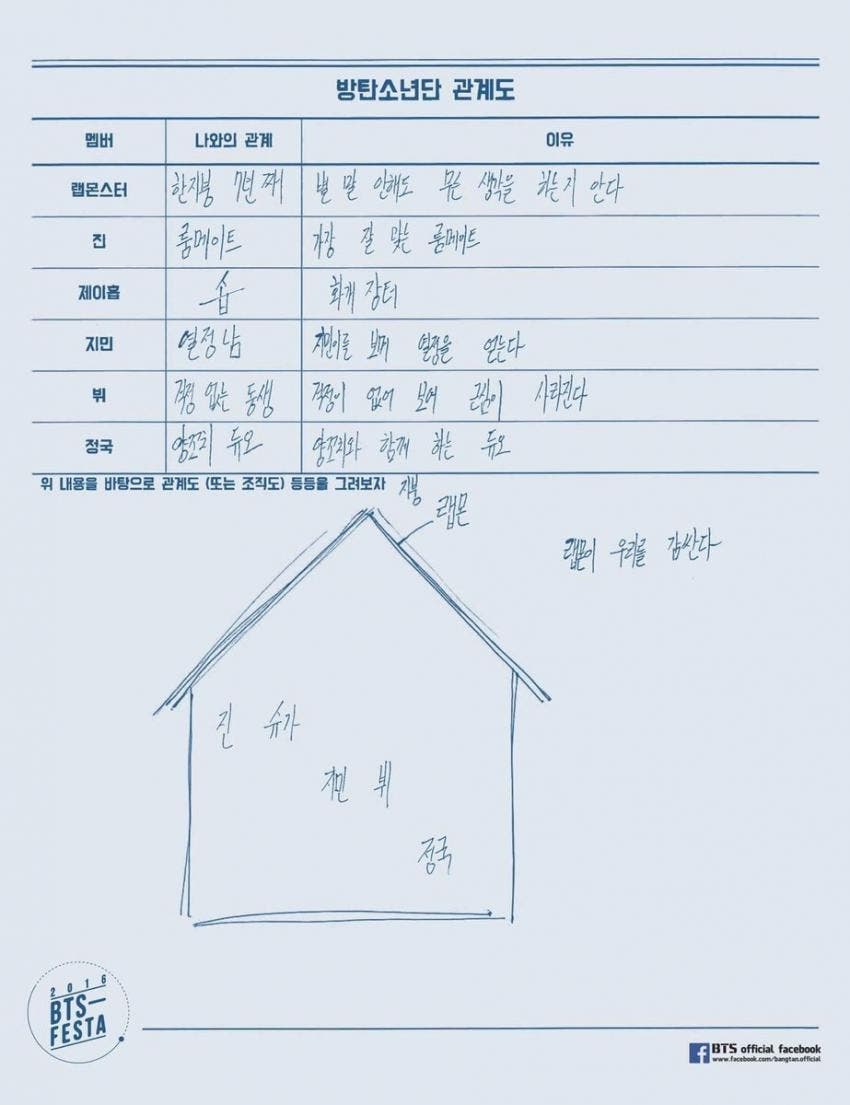 방탄소년단 관계도
멤버 나와의 관계 이유
랩몬스터 한지붕 7년 째 별 말 안해도 무슨 생각을 하는지 안다
진 룸메이트 가장 잘 맞는 룸메이트
제이홉 솝 화개 장터
지민 열정남 지민이를 보며 열정을 얻는다
뷔 걱정 없는 동생 걱정이 없어 보여 근심이 사라진다
정국 양조리 듀오 양조리와 함께 하는 듀오
위 내용을 바탕으로 관계도 (또는 조직도) 등등을 그려보자
지붕
랩몬
랩몬이 우리를 감싼다
진 슈가
지민 뷔
정국
2016
BTS-
FESTA
BTS official facebook
www.facebook.com/bangtan.official